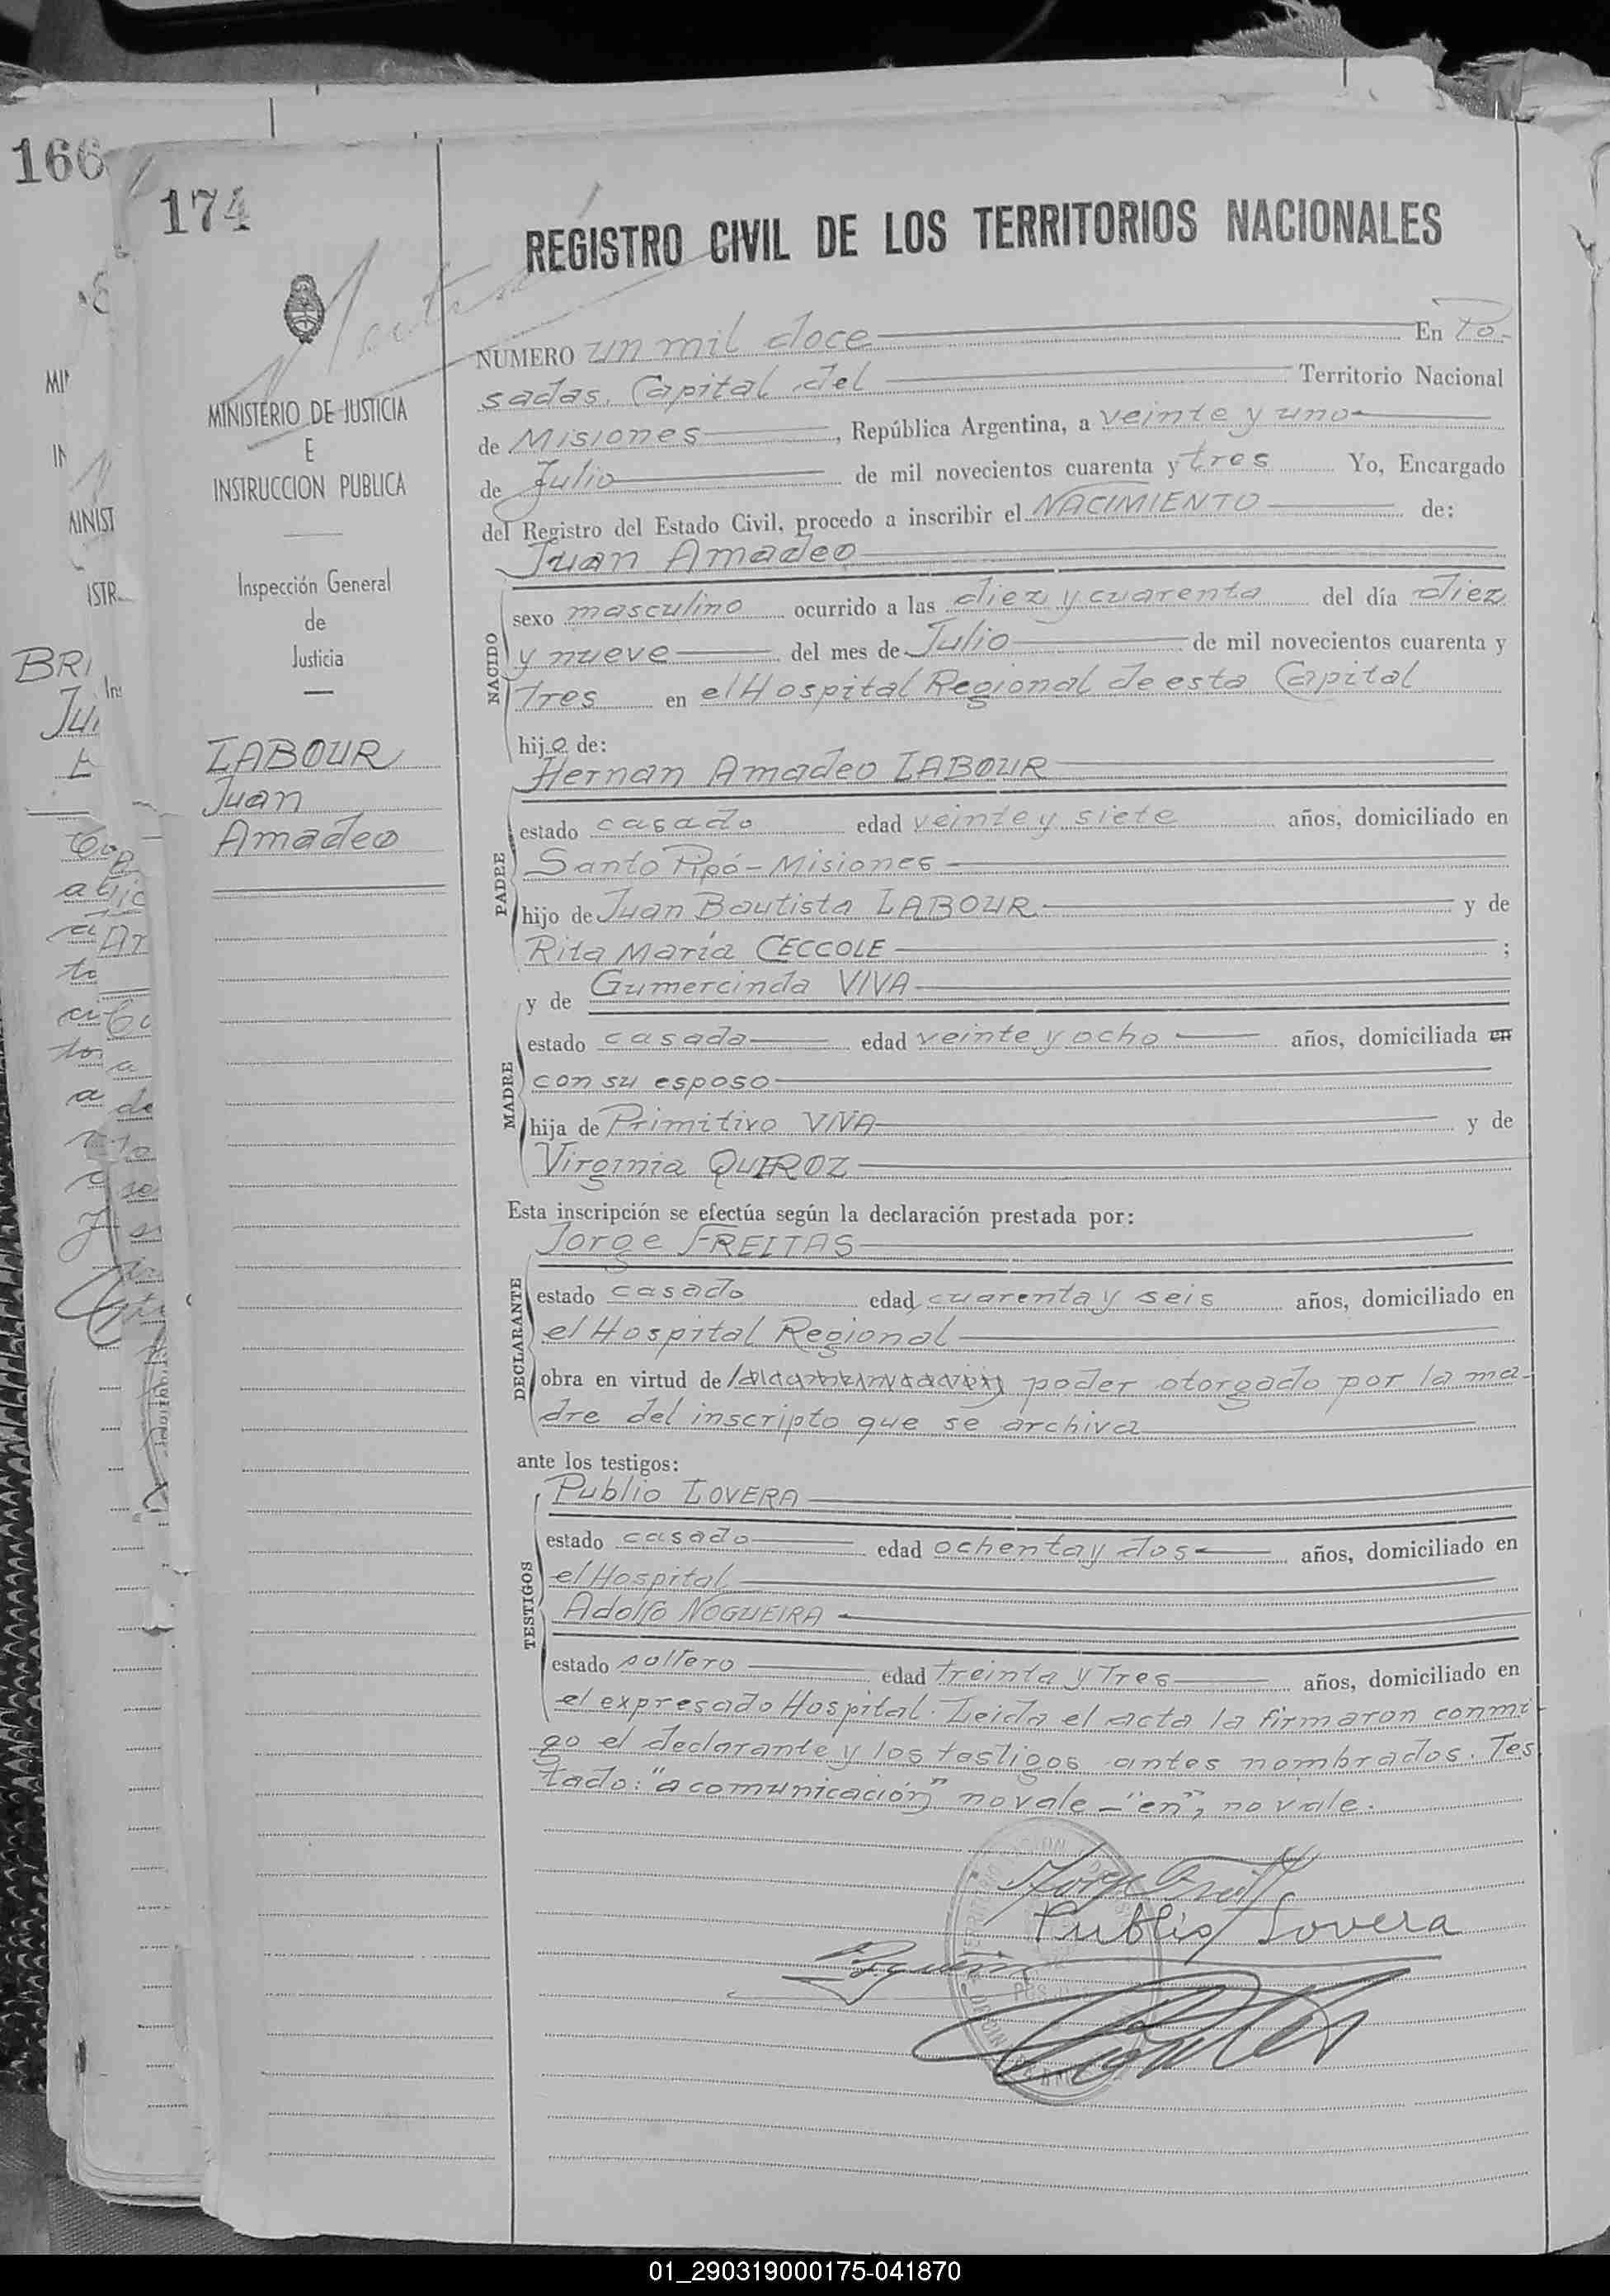 166
174
REGISTRO CIVIL DE LOS TERRITORIOS NACIONALES
MINISTERIO DE JUSTICIA
E
INSTRUCCION PUBLICA
Inspección General
de
Justicia
LABOUR
Juan
Amadeo
NUMERO un mil doce En Po-
sadas, Capital del Territorio Nacional
de Misiones, República Argentina, a veinte y uno
de Julio de mil novecientos cuarenta y tres Yo, Encargado
del Registro del Estado Civil, procedo a inscribir el NACIMIENTO de:
Juan Amadeo
NACIDO
sexo masculino ocurrido a las diez y cuarenta del día diez
y nueve del mes de Julio de mil novecientos cuarenta y
Tres en el Hospital Regional de esta Capital
hijo de:
Hernan Amadeo LABOUR
PADRE
estado casado edad veinte y siete años, domiciliado en
Santo Pipó - Misiones
hijo de Juan Bautista LABOUR y de
Rita María CECCOLE ;
y de Gumercinda VIVA
MADRE
estado casada edad veinte y ocho años, domiciliada en
con su esposo
hija de Primitivo VIVA y de
Virginia QUIROZ
Esta inscripción se efectúa según la declaración prestada por:
Jorge FREITAS
DECLARANTE
estado casado edad cuarenta y seis años, domiciliado en
el Hospital Regional
obra en virtud de poder otorgado por la ma-
dre del inscripto que se archiva
ante los testigos:
Publio LOVERA
TESTIGOS
estado casado edad ochenta y dos años, domiciliado en
el Hospital
Adolfo NOGUEIRA
estado soltero edad treinta y Tres años, domiciliado en
el expresado Hospital. Leida el acta la firmaron conmi-
go el declarante y los testigos antes nombrados. Tes
tado: "a comunicación" no vale - "en", no vale.
Publio Lovera
01_290319000175-041870